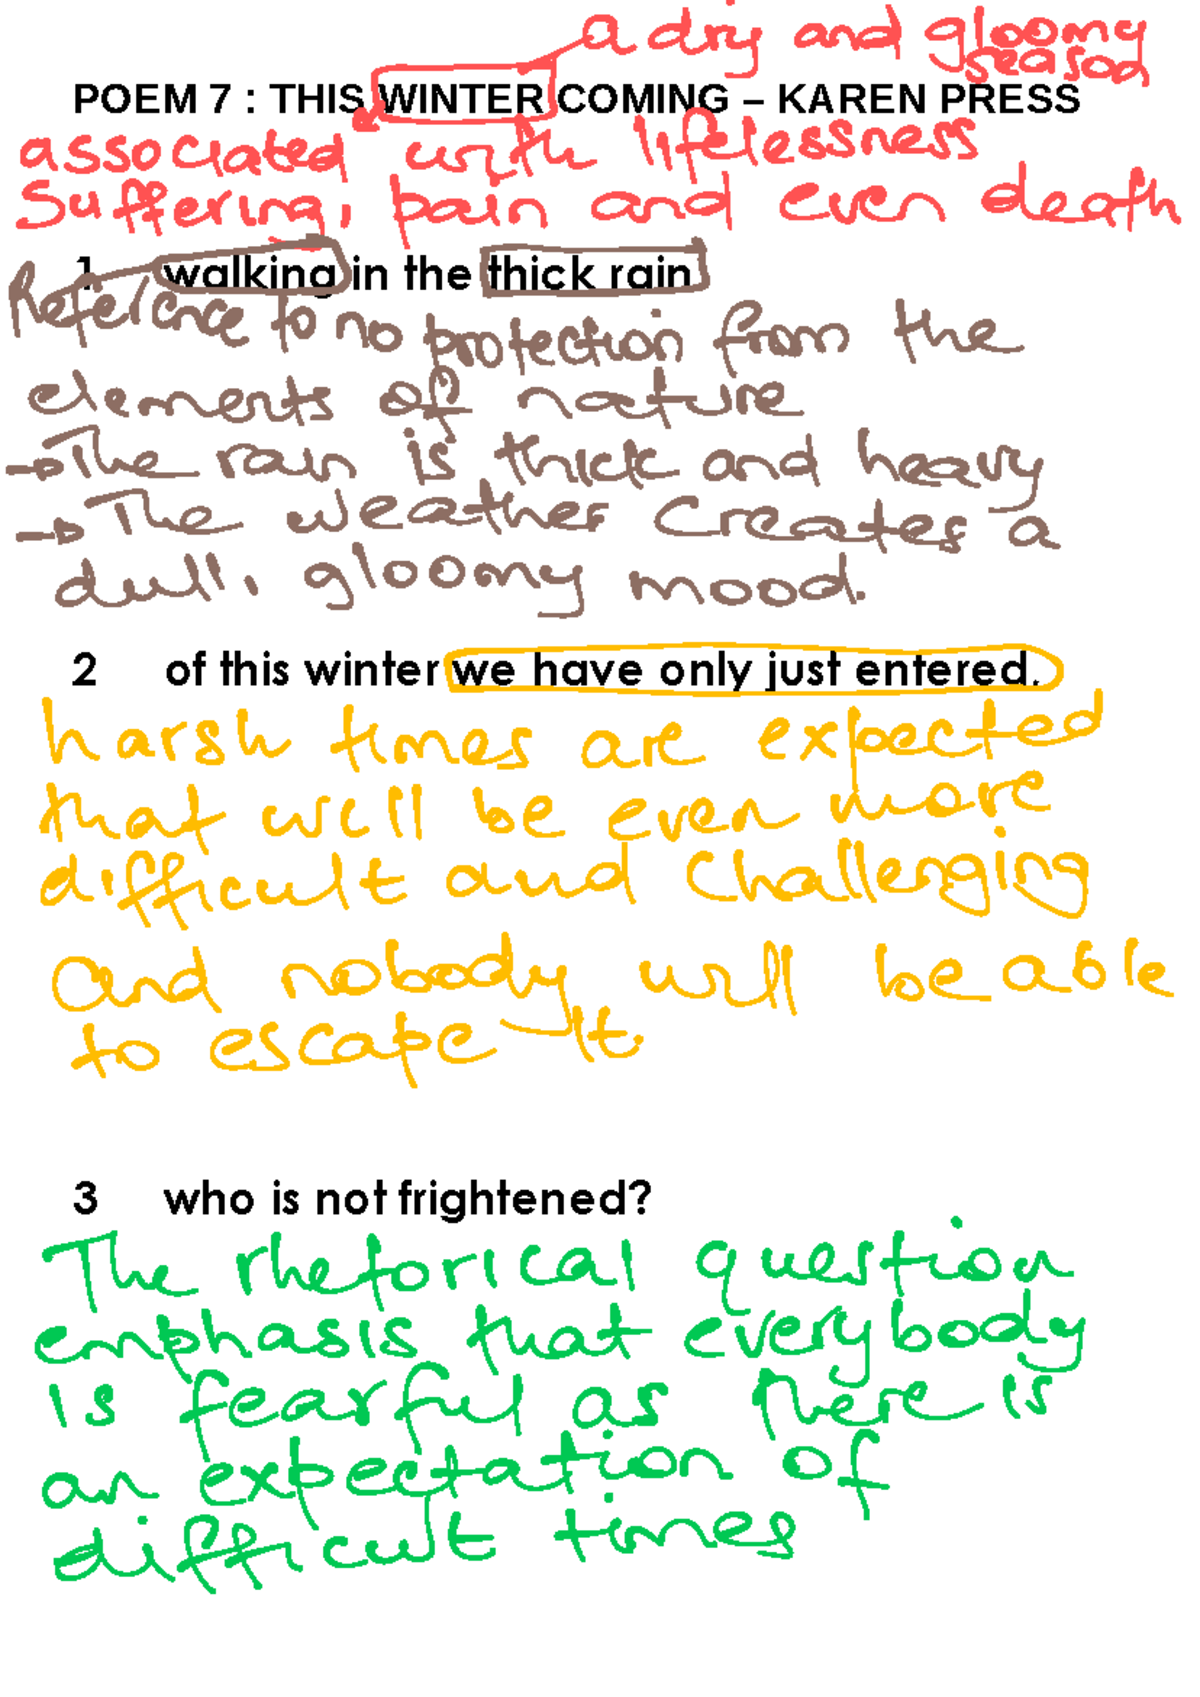 a dry and gloomy
season
POEM 7 : THIS WINTER COMING – KAREN PRESS
associated with lifelessness
suffering, pain and even death
1 walking in the thick rain
Reference to no protection from the
elements of nature
→The rain is thick and heavy
→The weather creates a
dull, gloomy mood.
2 of this winter we have only just entered.
harsh times are expected
that will be even more
difficult and challenging
and nobody will be able
to escape it.
3 who is not frightened?
The rhetorical question
emphasis that everybody
is fearful as there is
an expectation of
difficult times